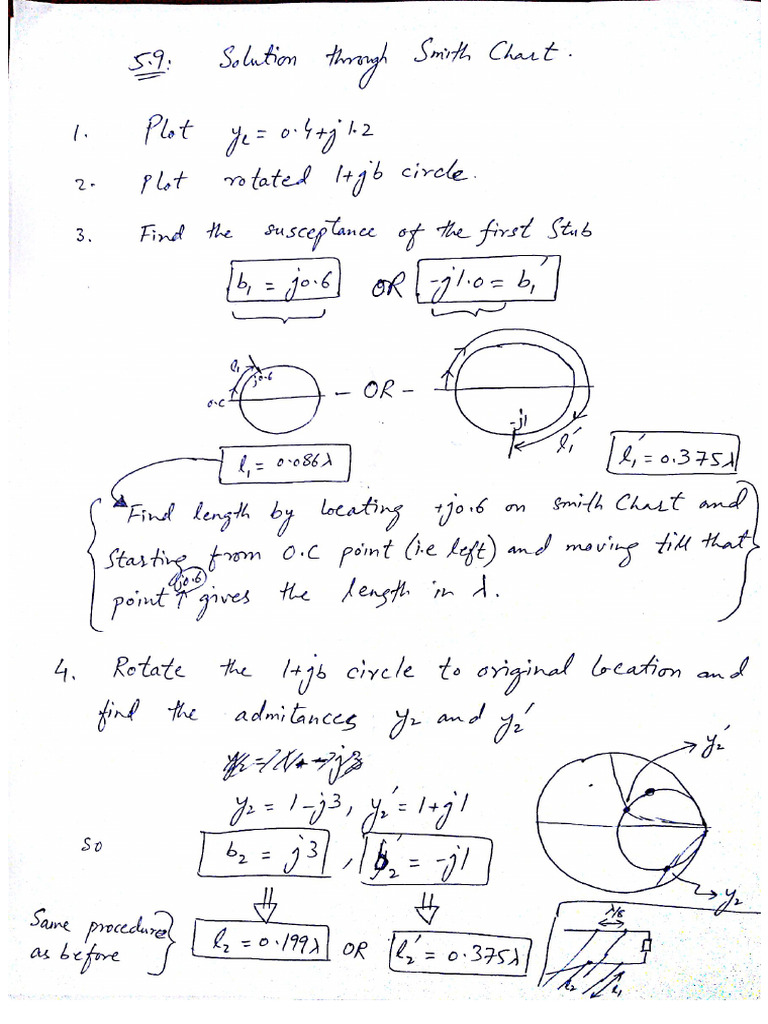 5.9: Solution through Smith Chart.
1. Plot yL = 0.4+j1.2
2. Plot rotated 1+jb circle.
3. Find the susceptance of the first Stub
b1 = j0.6 OR -j1.0 = b1'
l1 j0.6
o.c - OR -
-j1 l1'
l1 = 0.086λ l1' = 0.375λ
Find length by locating +j0.6 on smith Chart and
Starting from O.C point (i.e left) and moving till that
j0.6
point ↑ gives the length in λ.
4. Rotate the 1+jb circle to original location and
find the admitances y2 and y2'
y2'
y2 = 1-j3, y2' = 1+j1
So b2 = j3, b2' = -j1
y2
Same procedure
as before
l2 = 0.199λ OR l2' = 0.375λ
λ/8
l2 l1